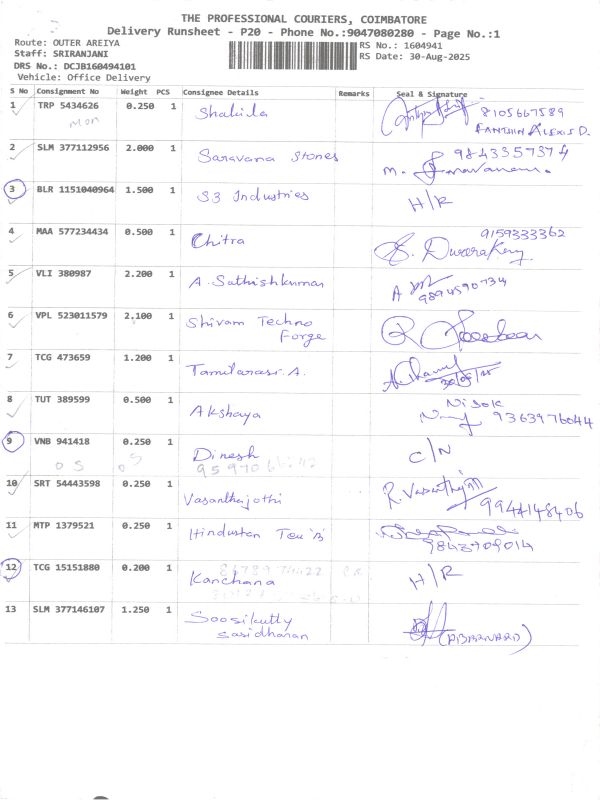 THE PROFESSIONAL COURIERS, COIMBATORE
Delivery Runsheet - P20 - Phone No.:9047080280 - Page No.:1
Route: OUTER AREIYA
RS No.: 1604941
Staff: SRIRANJANI
RS Date: 30-Aug-2025
DRS No.: DCJB160494101
Vehicle: Office Delivery
S No Consignment No Weight PCS Consignee Details Remarks Seal & Signature
1 TRP 5434626 0.250 1 Shakila 8105667589
Mon
2 SLM 377112956 2.000 1 Saravana Stones 9843357374
M. Saravanan.
3 BLR 1151040964 1.500 1 S3 Industries H/R
4 MAA 577234434 0.500 1 Chitra 9159333362
5 VLI 380987 2.200 1 A. Sathishkumar A
9894590734
6 VPL 523011579 2.100 1 Shivam Techno
Forge
7 TCG 473659 1.200 1 Tamilarasi.A.
30/08/25
8 TUT 389599 0.500 1 Akshaya 9363976044
9 VNB 941418 0.250 1 Dinesh C/N
OS OS
10 SRT 54443598 0.250 1 Vasanthajothi R. Vasanthajothi
9944148406
11 MTP 1379521 0.250 1 Hindustan
9843909014
12 TCG 15151880 0.200 1 Kanchana H/R
13 SLM 377146107 1.250 1 Soosikutty
Sasidharan